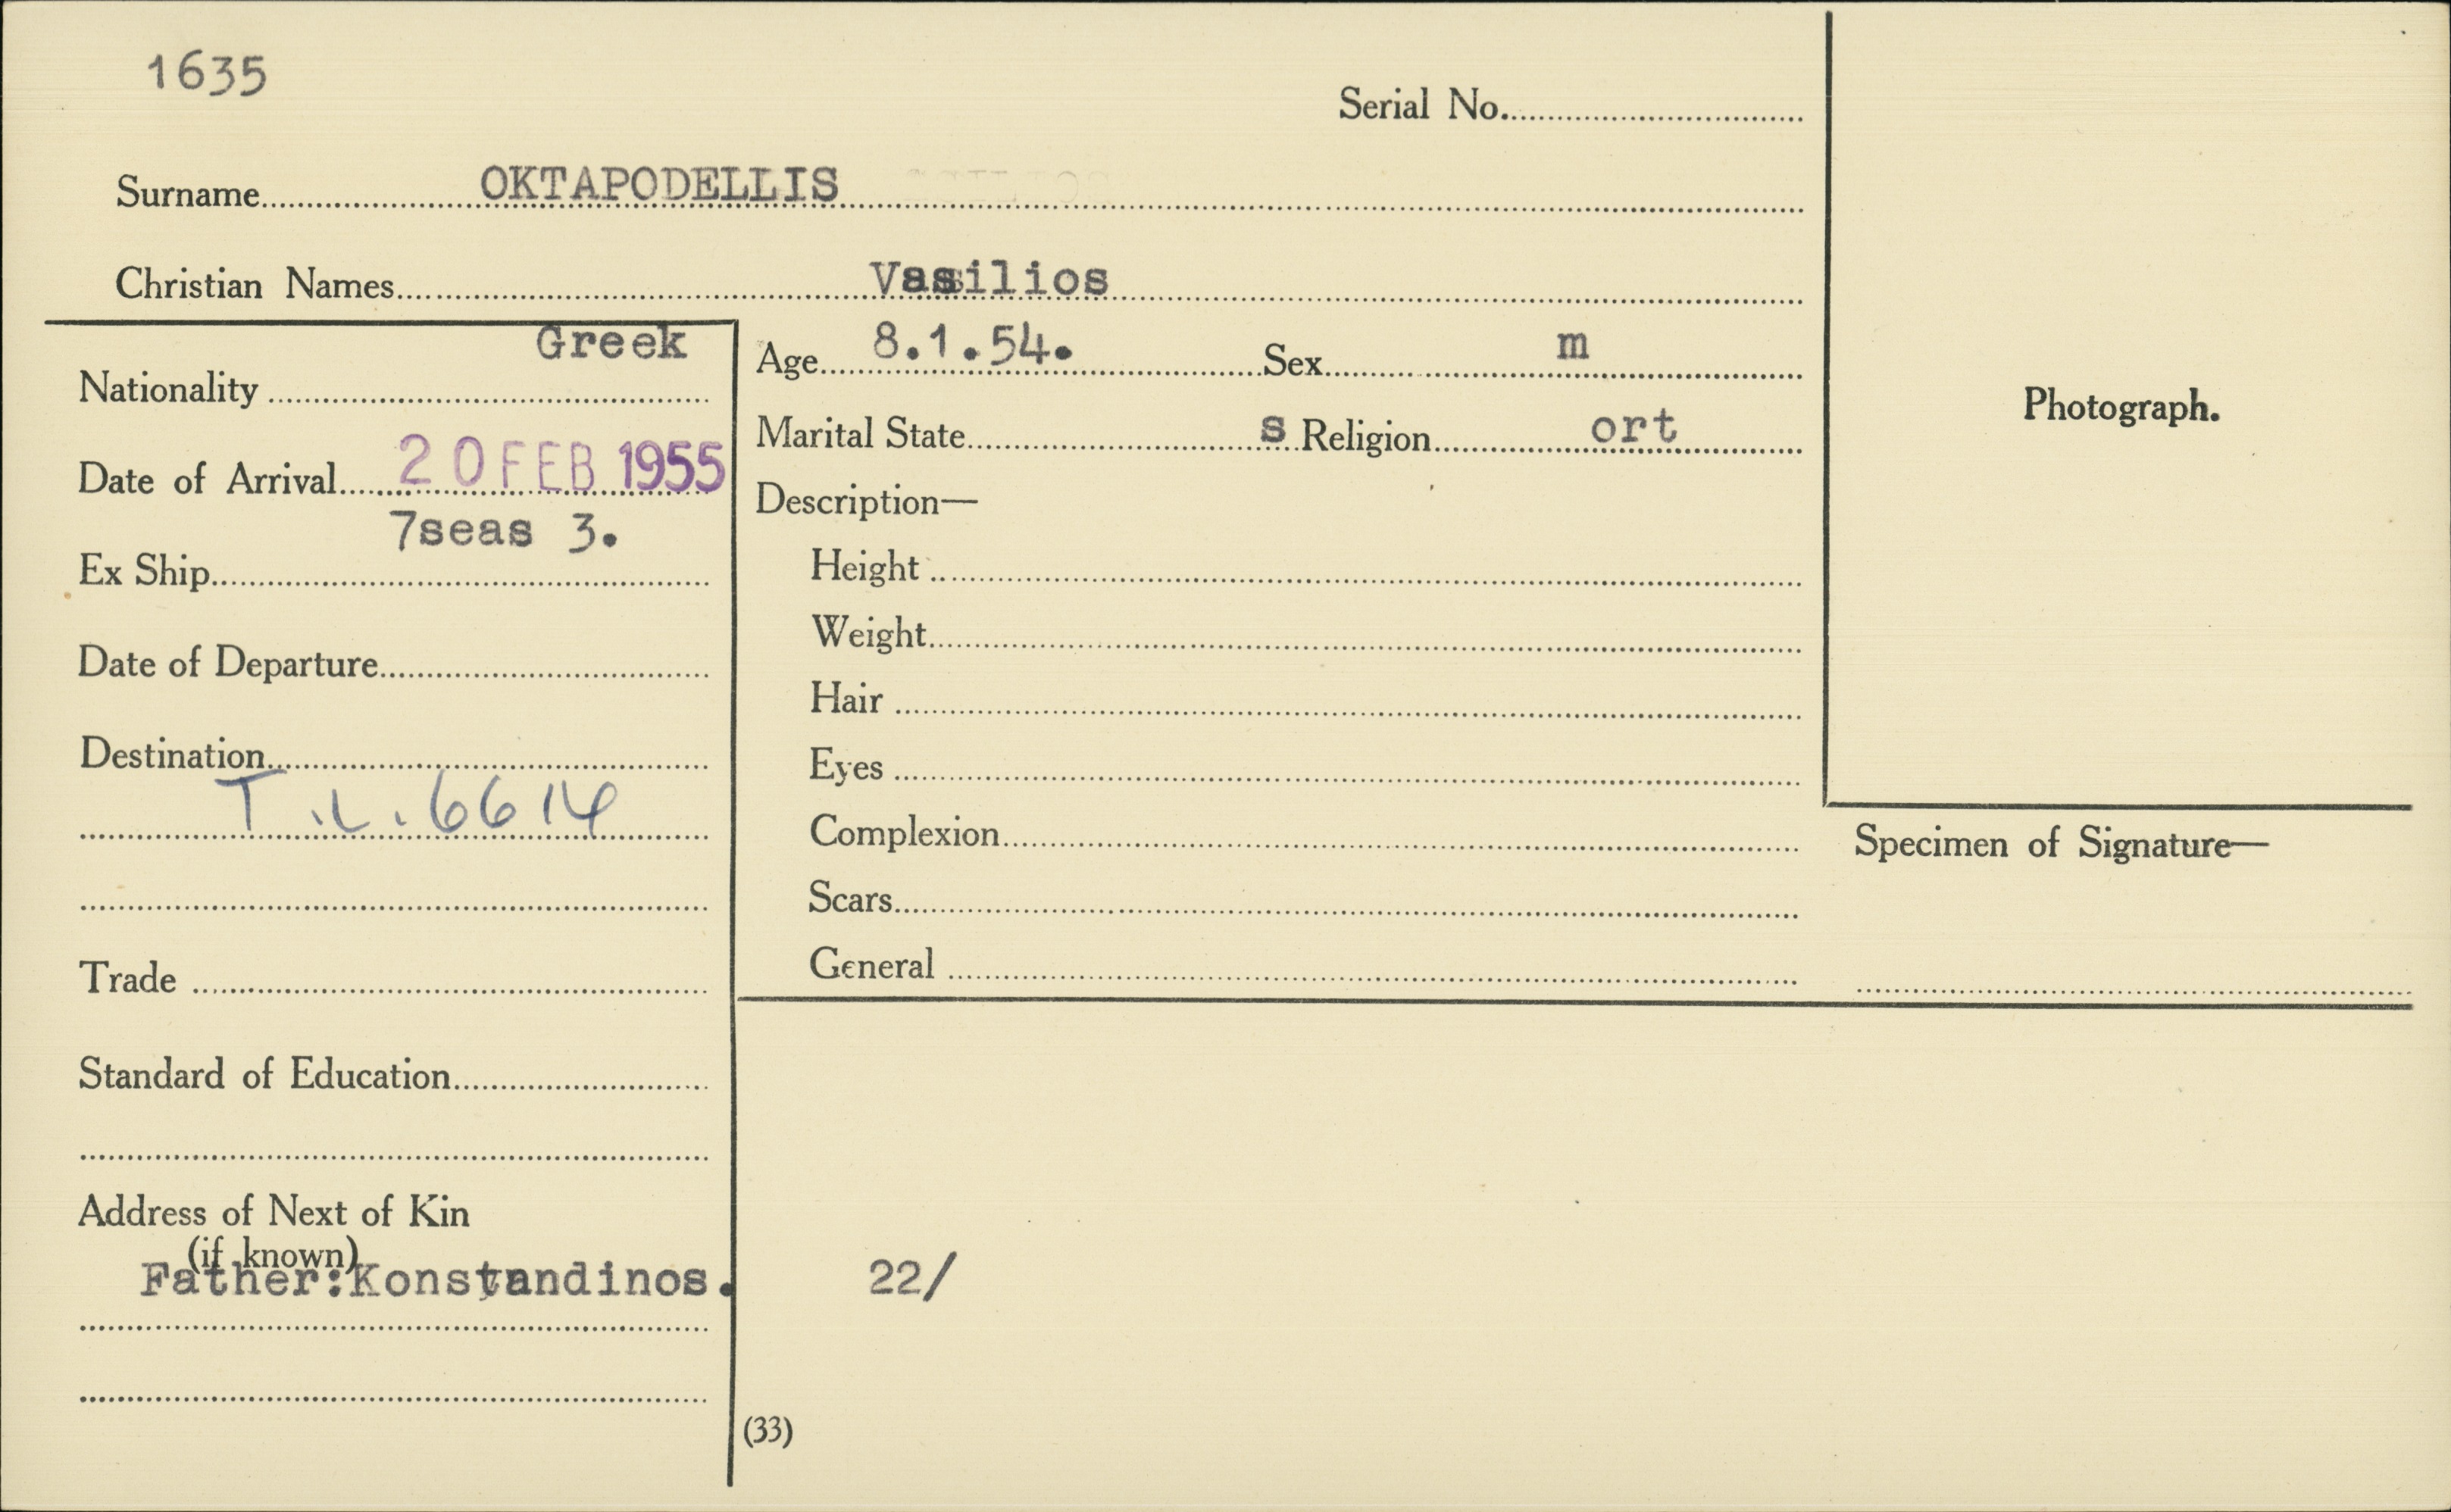 1635
Serial No.
Surname OKTAPODELLIS
Christian Names Vasilios
Nationality Greek
Date of Arrival 20 FEB 1955
Ex Ship 7seas 3.
Date of Departure
Destination
T.L. 6614
Trade
Standard of Education
Address of Next of Kin
(if known)
Father:Konstandinos.
Age 8.1.54. Sex m
Marital State s Religion ort
Description—
Height
Weight
Hair
Eyes
Complexion
Scars
General
22/
(33)
Photograph.
Specimen of Signature—